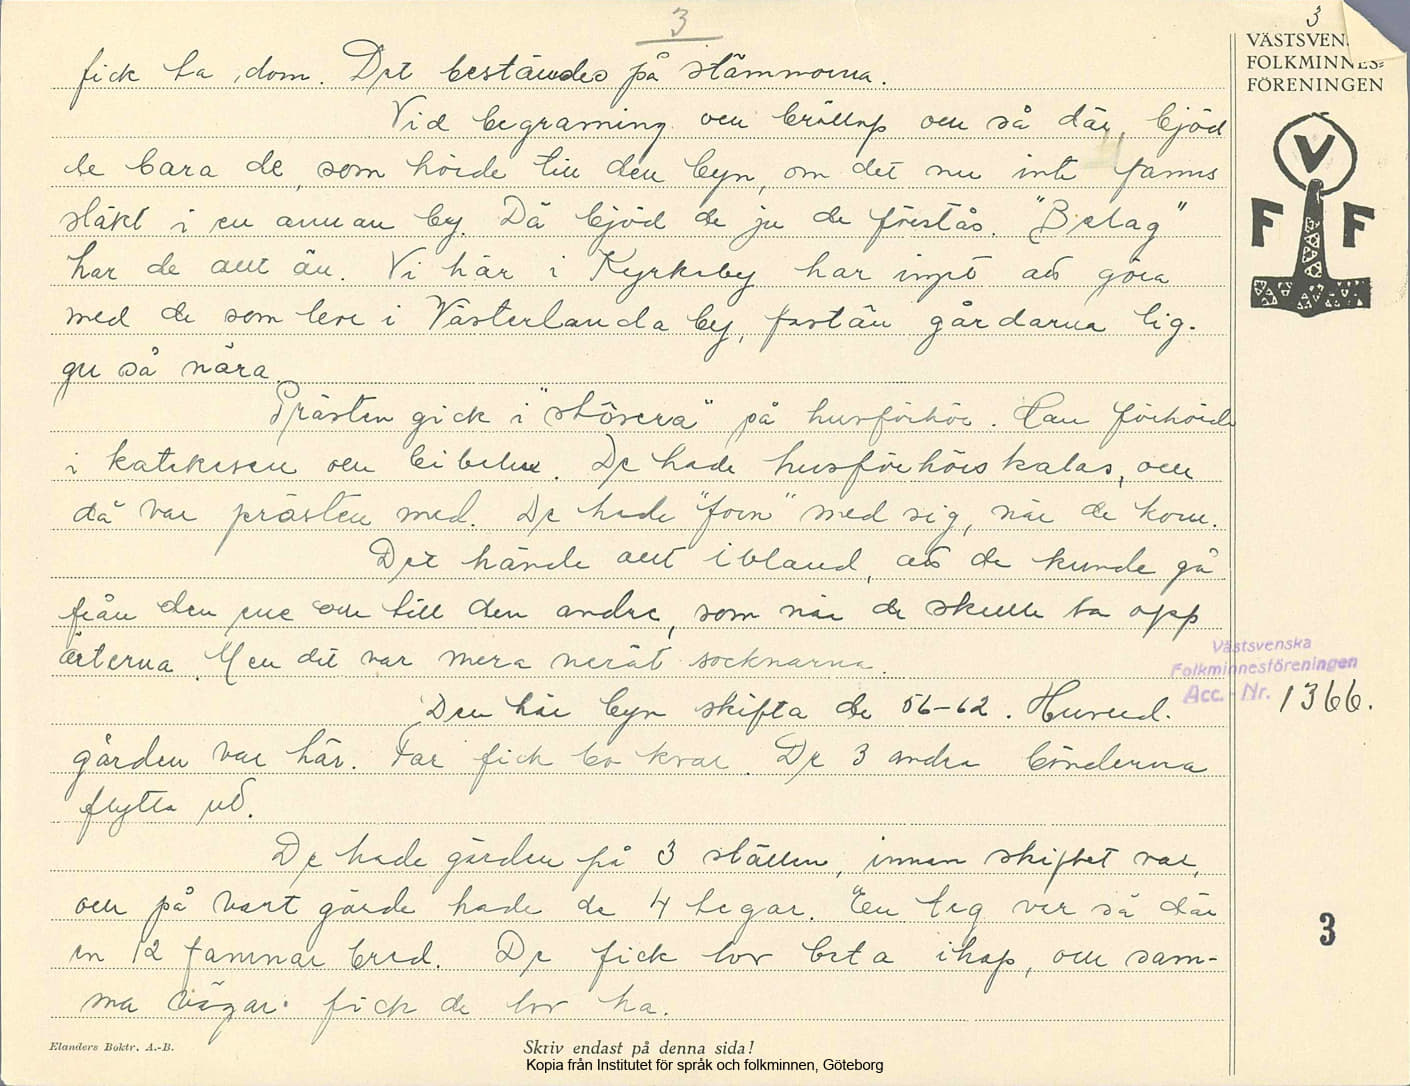 3
3
VÄSTSVEN.
FOLKMINNES=
FÖRENINGEN
V
F F
fick ta dom. Det bestämdes på stämmorna.
Vid begravning och bröllop och så där, bjöd
de bara de, som hörde till den byn, om det nu inte fanns
släkt i en annan by. Då bjöd de ju de förstås. "Belag"
har de allt än. Vi här i Kyrkeby har inget att göra
med de som bere i Västerlanda by, fastän gårdarna lig-
ger så nära.
Prästen gick i "stövera" på husförhör. Han förhörde
i katekesen och bibeln. De hade husförhörskalas, och
då var prästen med. De hade "foin" med sig, när de kom.
Det hände allt ibland, att de kunde gå
från den ene och till den andre, som när de skulle ta opp
ärterna. Men det var mera neråt socknarna.
Den här byn skifta de 56-62. Huvud-
gården var här. Far fick bo kvar. De 3 andra bönderna
flytta ut.
De hade gärden på 3 ställen, innan skiftet var,
och på vart gärde hade de 4 tegar. En teg ver så där
en 12 famnar bred. De fick lov beta ihop, och sam-
ma vägar fick de lov ha.
Västsvenska
Folkminnesföreningen
Acc. - Nr. 1366.
3
Elanders Boktr. A.-B.
Skriv endast på denna sida!
Kopia från Institutet för språk och folkminnen, Göteborg